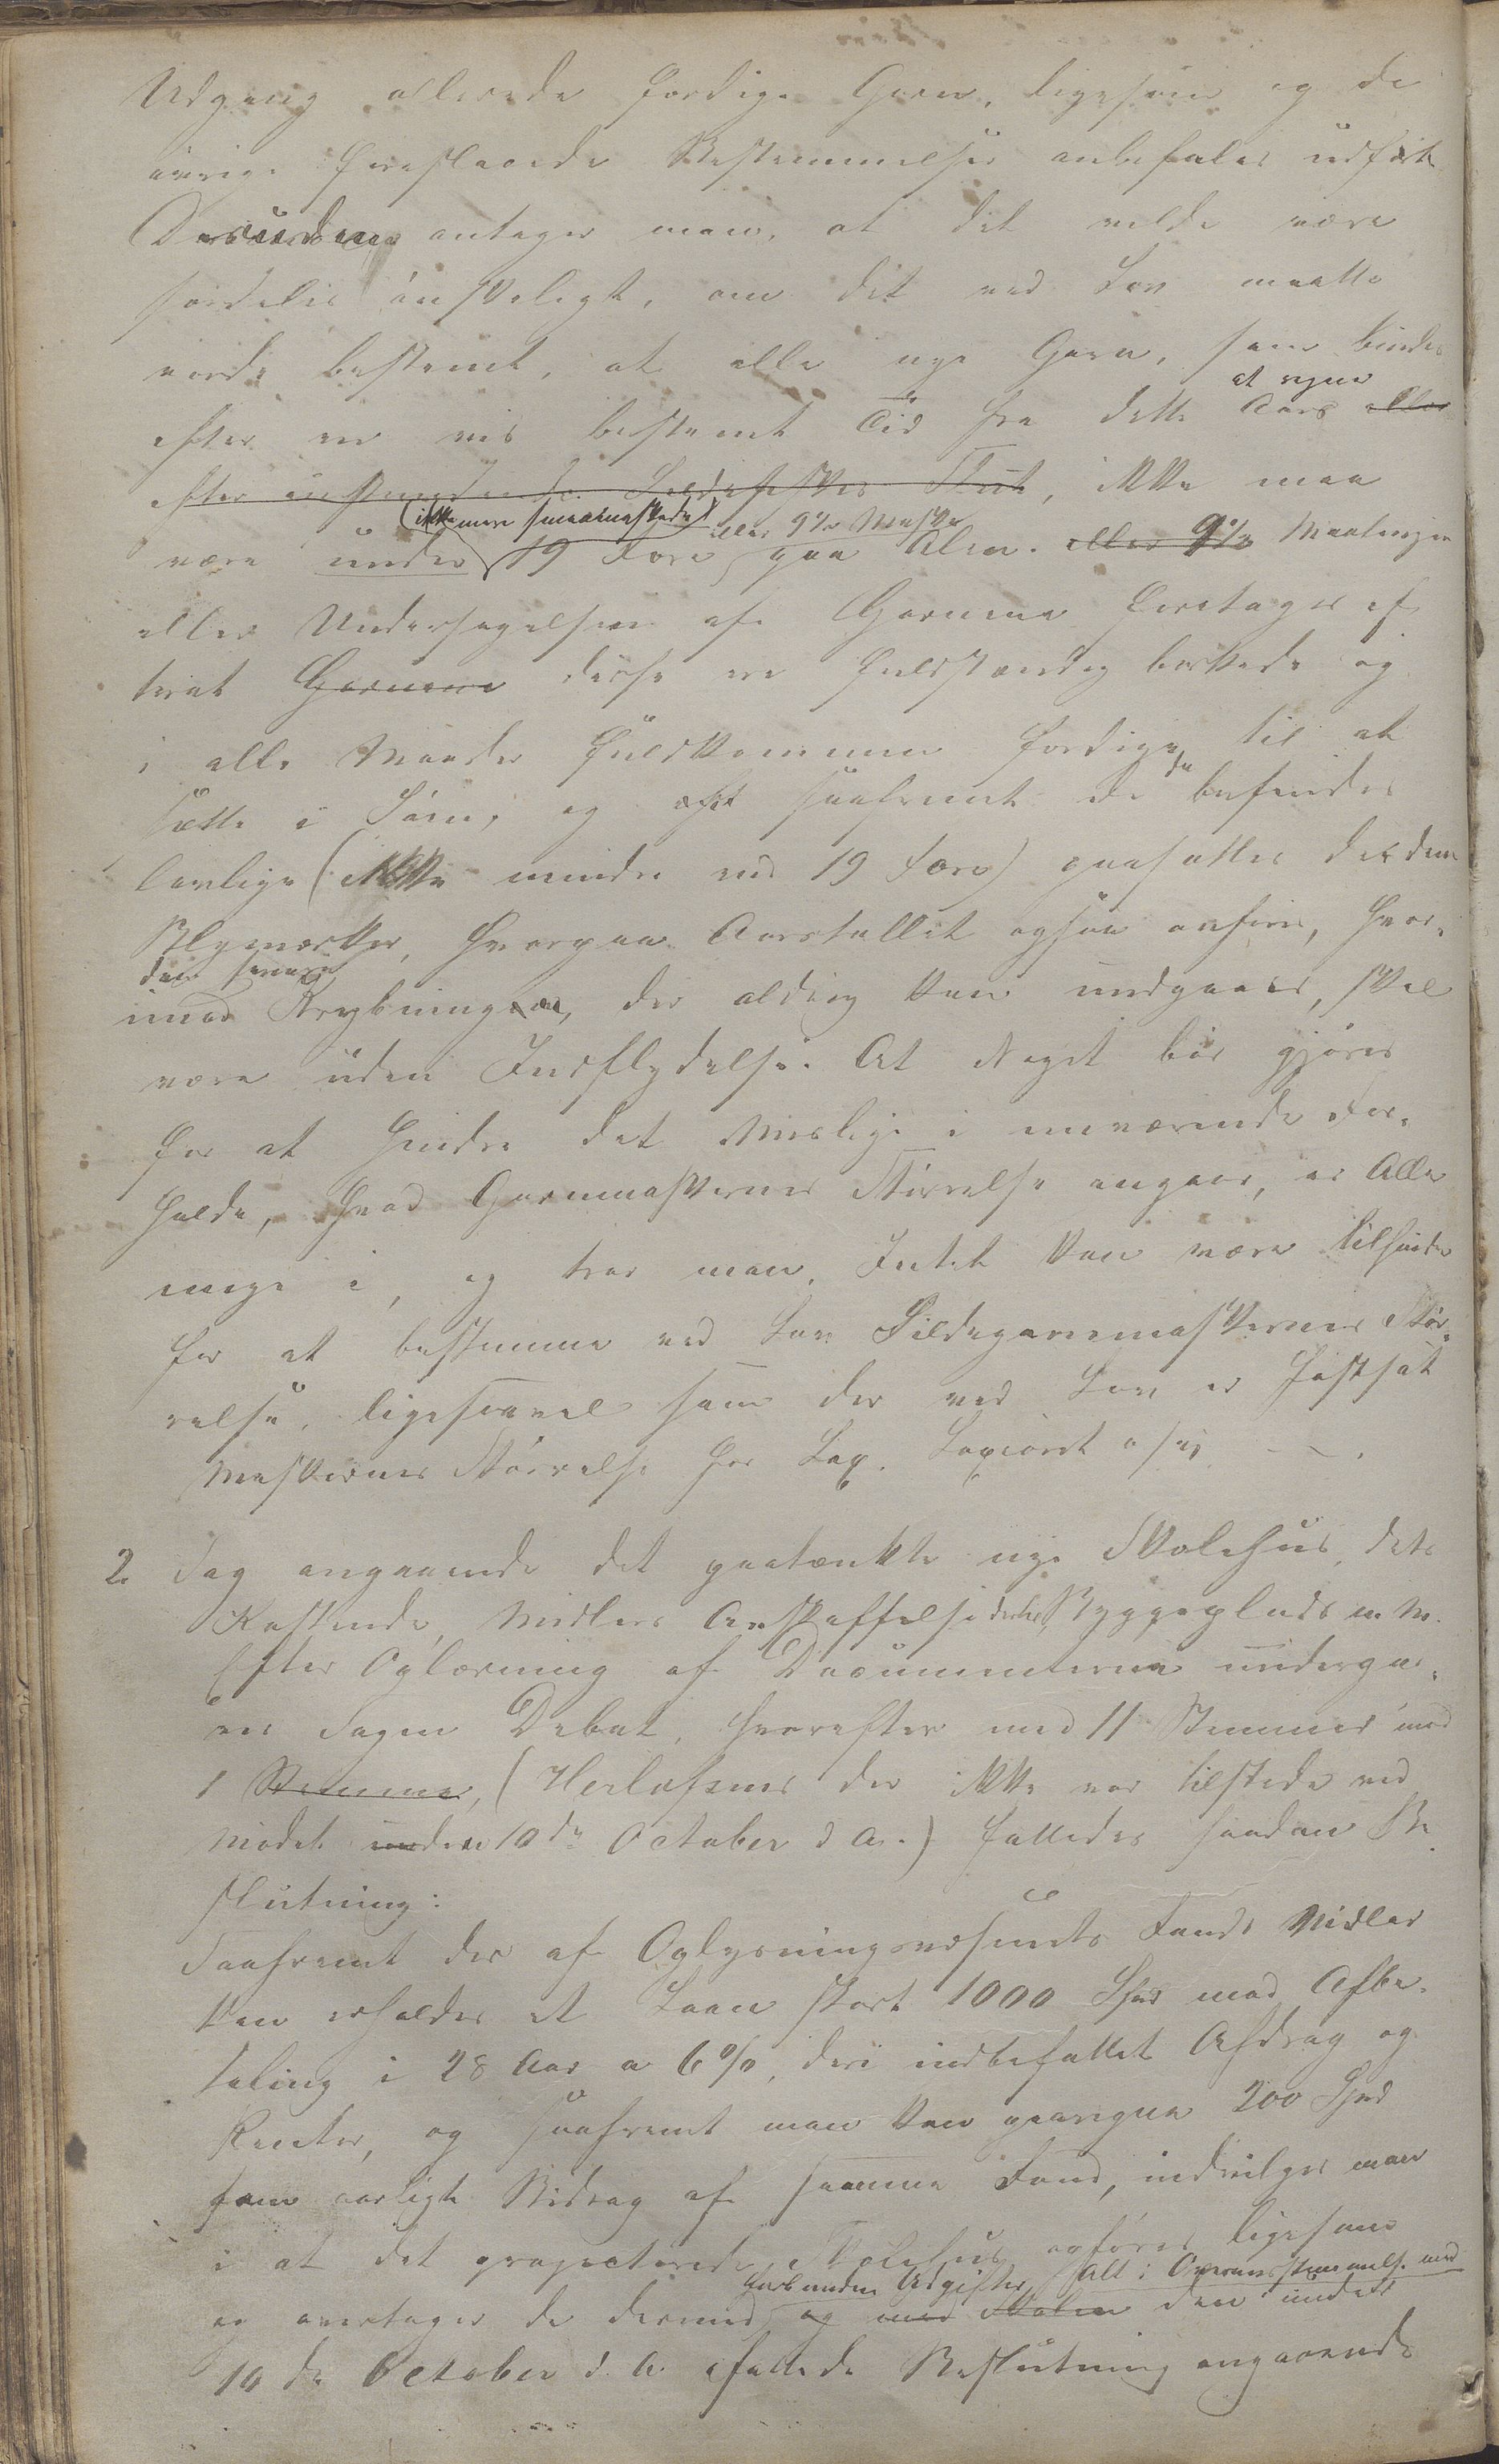 Udgang allerede færdige Garn, ligesom og de
øvrige foreslaaede Bestemmelser anbefales udført
Desuden antager man, at det vilde være
særdeles ønskeligt, om det ved Lov maatte
vorde bestemt, at alle nye Garn, som bindes
efter en vis bestemt Tid fra dette Aars at regne eller
efter indstundende Sildefiskes Slut, ikke maa
være under (ikke mere smaamaskede) 19 Fare eller 9½ Maske paa Alen. eller 9½ Maalingen
eller Undersøgelsen af Garnene foretages ef
terat Garnene disse ere fuldstændig barkede og
i alle Maader fuldkommen færdige til at
sætte i Søen, og saafremt de da befindes
lovlige (ikke mindre end 19 Fare) paasættes der dem
Blymærker, hvorpaa Aarstallet ogsaa anføres, hvor-
imod den senere Krybningen, der aldrig kan undgaaes, skal
være uden Indflydelse. At Noget bør gjøres
for at hindre det Mislige i nuværende For-
holde, hvad Garnmaskernes Størrelse angaar, er Alle
enige i, og tror man, Intet kan være tilhinder
for at bestemme ved Lov Sildegarnmaskernes Stør-
relse, ligesaavel som der ved Lov er fastsat
Maskernes Størrelse for Lax, Laxørret osv —.
2. Sag angaaende det paatænkte nye Skolehus, dets
Kostende, Midlers Anskaffelse dertil, Byggeplads m. M.
Efter Oplæsning af Documenterne undergav-
es Sagen Debat, hvorefter med 11 Stemmer mod
1 Stemme, (Herlofsens der ikke var tilstede ved
Mødet under 10de October d. A.) fattedes saadan Be-
slutning:
Saafremt der af Oplysningsvæsenets Fonds Midler
kan erholdes et Laan stort 1000 Spd mod Afbe-
taling i 28 Aar a 6%, deri indbefattet Afdrag og
Renter, og saafremt man kan paaregne 200 Spd
som aarligt Bidrag af samme Fond, indvilger man
i at det projecterede Skolehus opføres ligesom
og overtager de dermed forbundne Udgifter, Alt i Overensstemmelse med og med Skolen den under
10de October d. A. fattede Beslutning angaaende